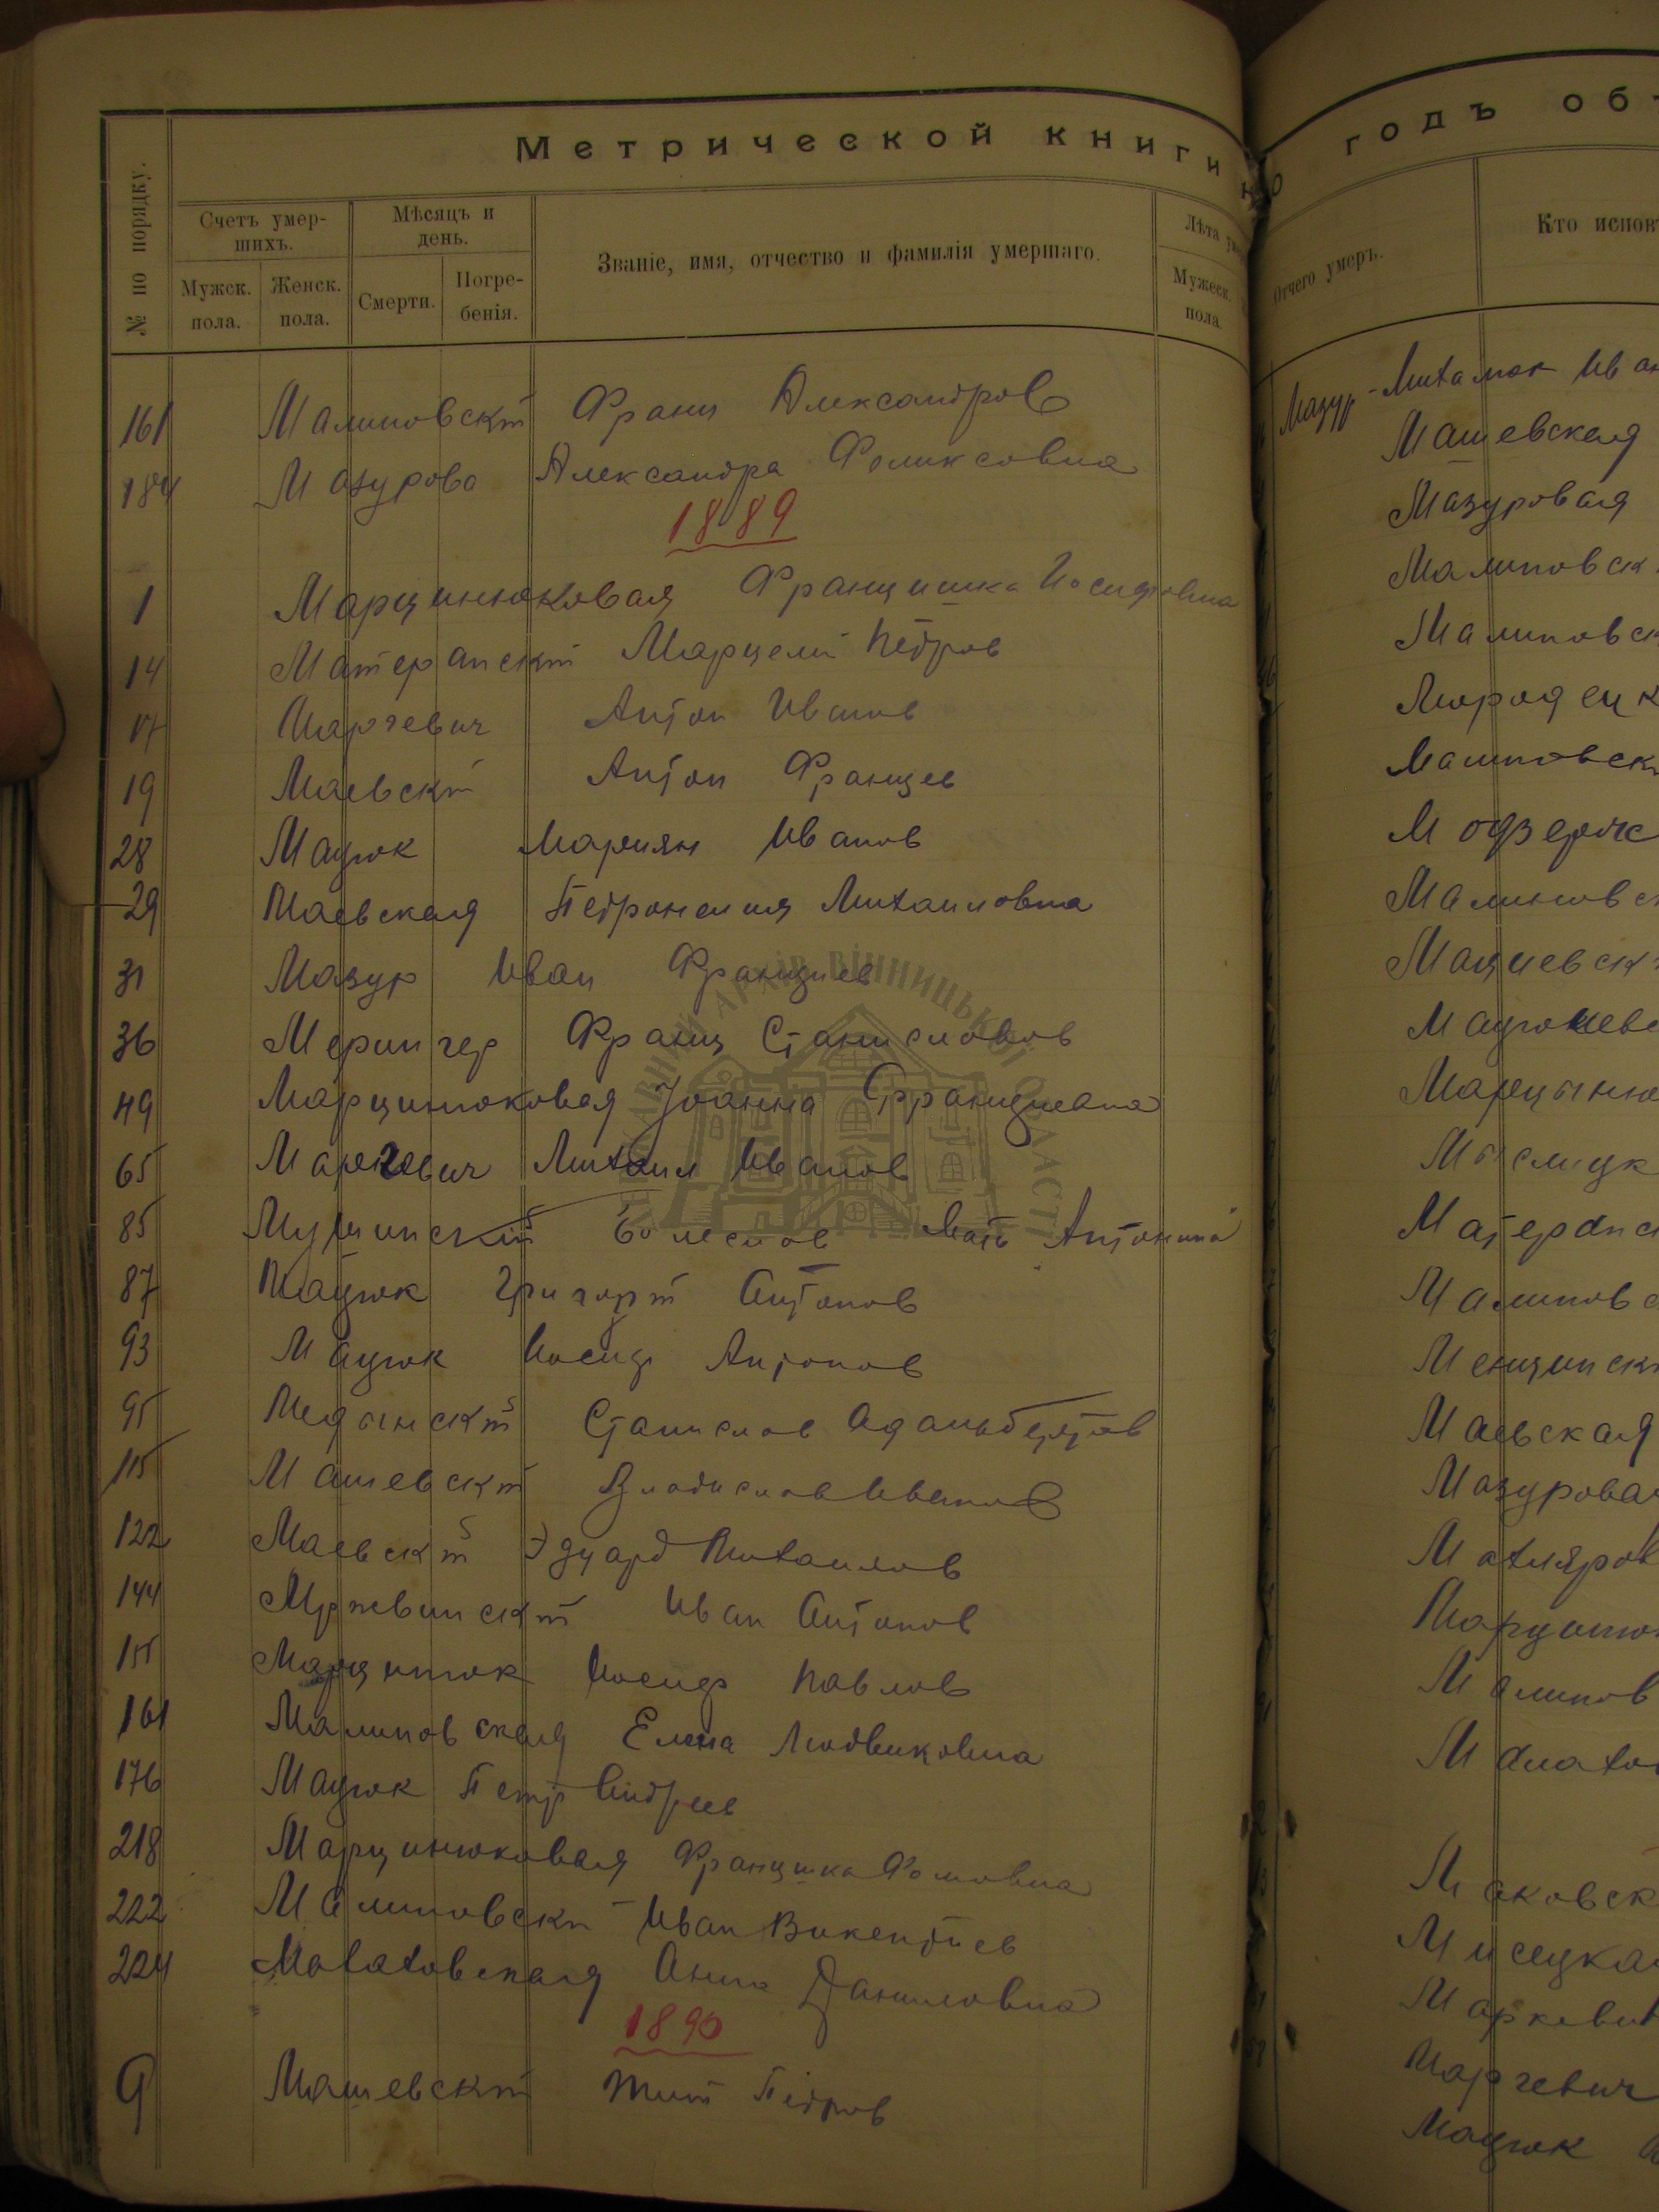 Метрической книги на
№ по порядку.
Счетъ умер-
шихъ.
Мужск.
пола.
Женск.
пола.
Мѣсяцъ и
день.
Смерти.
Погре-
бенія.
Званіе, имя, отчество и фамилія умершаго.
Лѣта
Мужеск.
пола
161 Малиновскій Франц Александров
184 Мазурова Александра Феликсовна
1889
1 Марцинюковая Францишка Иосифовна
14 Матеранскій Марцели Петров
17 Марчевич Антон Иванов
19 Маевскій Антон Францев
28 Мацюк Мариян Иванов
29 Маевская Петронелия Михаиловна
31 Мазур Иван Францыев
36 Мерингер Франц Станиславов
49 Марцинюковая Јоанна Францыевна
65 Маркевич Михаил Иванов
85 Мушинскій Болеслав Мать Антонина
87 Мацюк Григорій Антонов
93 Мацюк Иосиф Антонов
95 Медынскій Станислав Адальбертов
115 Машевскій Владислав Иванов
122 Маевскій Эдуард Михаилов
144 Мржевинскій Иван Антонов
151 Марцинюк Иосиф Павлов
161 Малиновская Елена Людвиковна
176 Мацюк Петр Андреев
218 Марцинюковая Францишка Фомовна
222 Малиновскі Иван Викентиев
224 Малаховская Анна Даниловна
1890
9 Машевскій Тит Петров
годъ объ
Отчего умеръ.
Кто испов
Мазур - Михалок Иван
Машевская
Мазуровая
Малиновск
Малиновск
Малиновск
Малиновс
Мациевск
Марцыню
Матеранс
Малиновс
Маевская
Мазуровая
Марцинюк
Малинов
Маковск
Мисецкая
Маркевич
Марчевич
Мацюк